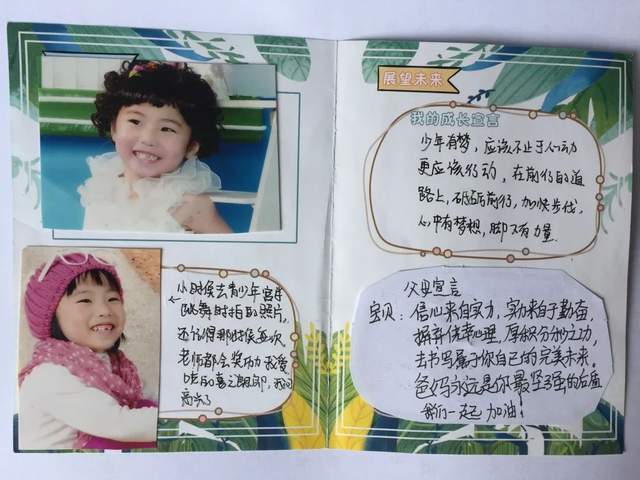 小时候去青少年宫
跳舞时拍的照片,
还记得那时候每次
老师都会奖励我爱
吃的喜之郎
高兴了
展望未来
我的成长宣言
少年有梦,应该不止于心动
更应该行动,在前行的道
路上,砥砺前行,加快步伐,
心中有梦想,脚下有力量.
父母宣言
宝贝:信心来自实力,实力来自于勤奋,
摒弃侥幸心理,厚积分秒之功,
去书写属于你自己的完美未来.
爸妈永远是你最坚强的后盾
我们一起加油!